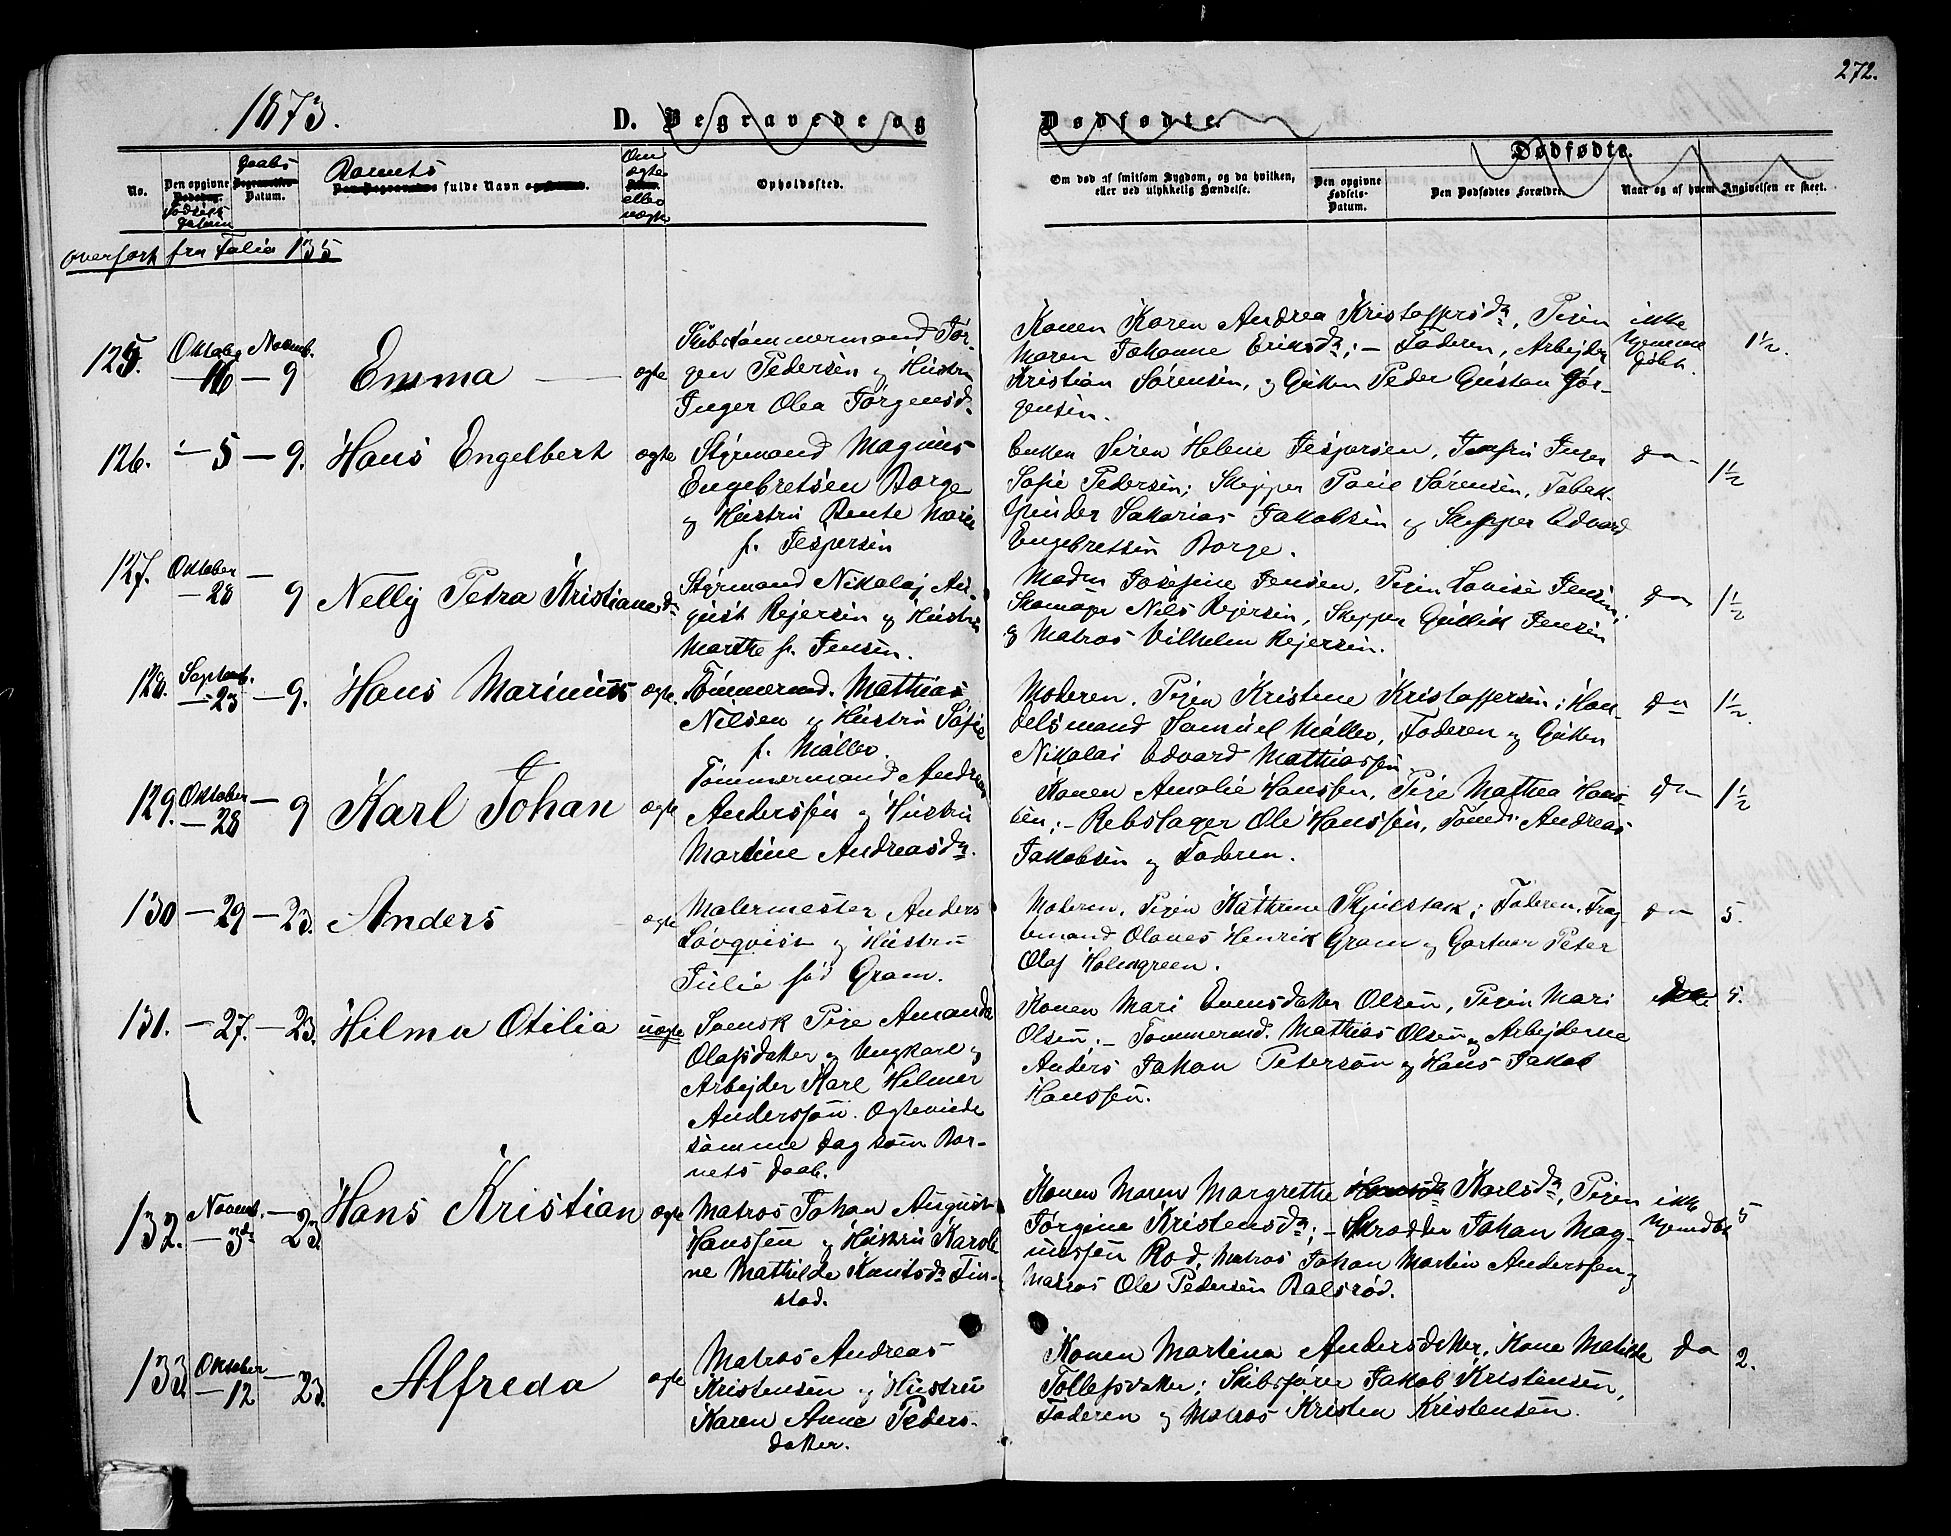 272.
1873.
D. Begravede og Dødfødte.
Dødfødte.
No.
Den opgivne Dødsdag
Fødsels
Datum
Daabs
Begravelses
Datum.
Barnets
Den Begravedes fulde Navn og Stand.
Om
ægte
eller
uægte
Opholdssted.
Om død af smitsom Sygdom, og da hvilken,
eller ved ulykkelig Hændelse.
Den opgivne
Fødsels-
Datum.
Den Dødfødtes Forældre.
Naar og af hvem Angivelsen er skeet.
overført fra Folio 135
125. Oktober 16 — Novemb. 9
Emma —
ægte
Skibstømmermand Jør-
gen Pedersen og Hustru
Inger Olea Jørgensd.
Konen Karen Andrea Kristoffersdr, Pigen
Maren Johanne Eriksdr; — Faderen, Arbejder
Kristian Sørensen, og Gutten Peder Gustav Jør-
gensen.
ikke
hjemme
døbt.
1½.
126. — 5 — 9.
Hans Engelbert
ægte
Styrmand Magnus
Engebretsen Borge
og Hustru Bente Marie
f. Jespersen
Enken Siren Helene Jespersen, Jomfru Inger
Sofie Pedersen; Skipper Paul Sørensen, Tobak-
spinder Sakarias Jakobsen og Skipper Edvard
Engebretsen Borge.
do —
1½
127. Oktober — 28 — 9
Nelly Petra Kristianesdr
Styrmand Nikolaj Au-
gust Rejersen og Hustru
Marthe f. Jensen.
Madm Josefine Jensen, Pigen Lovise Jensen,
Skomager Nils Rejersen, Skipper Gullik Jensen
og Matros Vilhelm Rejersen.
do
1½
128. Septemb. — 23 — 9.
Hans Marinius
ægte
Tømmermd. Mathias
Nilsen og Hustru Sofie
f. Møller.
Moderen, Pigen Kristine Kristoffersen; Han-
delsmand Samuel Møller, Faderen og Gutten
Nikolai Edvard Mathiassen
do
1½.
129. Oktober — 28 — 9
Karl Johan
ægte
Tømmermand Andreas
Anderssen og Hustru
Martine Andreasdr.
Konen Amalie Hanssen, Pige Mathea Hans-
sen; — Rebslager Ole Hanssen, Tømd. Andreas
Jakobsen og Faderen.
do
1½
130 — 29 — 23.
Anders
ægte
Malermester Anders
Løvqvist og Hustru
Julie fød Gram.
Moderen, Pigen Kathrine Skjikstak; Faderen, Frag-
tmand Olaves Henrik Gram og Gartner Peter
Olaf Holmgreen.
do
5.
131. — 27. — 23.
Hilma Otilia
uægte
Svensk Pige Amanda
Olafsdatter og Ungkarl og
Arbejder Karl Hilmer
Anderssøn. Ægteviede
samme Dag som Bar-
nets Daab.
Konen Mari Evensdatter Olsen, Pigen Mari
Olsen; — Tømmermd. Mathias Olsen og Arbejderne
Anders Johan Peterson og Hans Jakob
Hanssen.
5.
132. Novemb. — 3de — 23.
Hans Kristian
ægte
Matros Johan August
Hanssen og Hustru Karoli-
ne Mathilde Knutsdr Tin-
stad.
Konen Maren Margrethe Hansdr Karlsdr, Pigen
Jørgine Kristensdr; — Skrædder Johan Mag-
nussen Rød, Matros Johan Martin Anderssen og
Matros Ole Pedersen Balsrød.
ikke
hjemdøbt
5
133. Oktober — 12 — 23.
Alfreda
ægte
Matros Andreas
Kristensen og Hustru
Karen Anne Peders-
datter.
Konen Martina Andersdatter, Kone Matilde
Tollefsdatter; Skibsfører Jakob Kristensen,
Faderen og Matros Kristen Kristensen.
do
2.